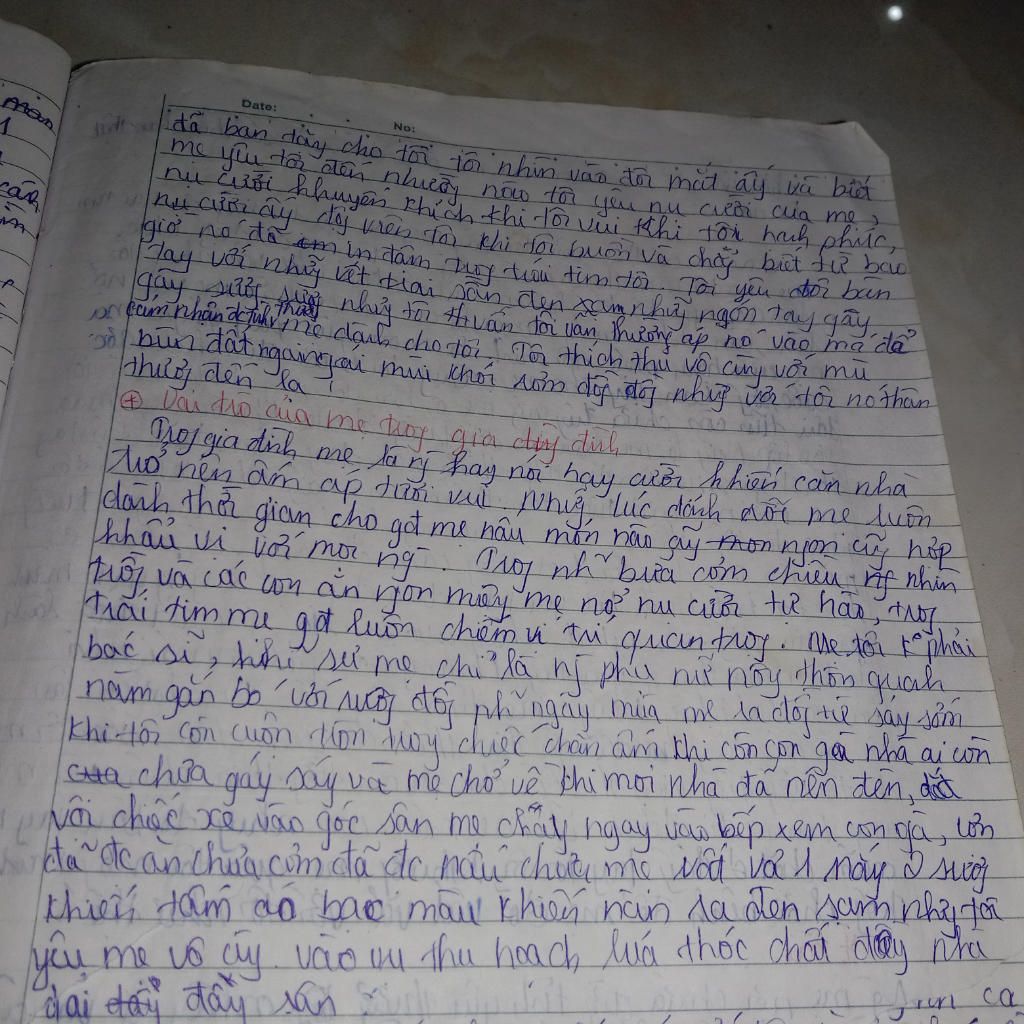 Date: No:
đã ban tăy cho tôi tôi nhìn vào đôi mắt ấy và biết
mẹ yêu tôi đến nhường nào tôi yêu nụ cười của mẹ,
nụ cười khuyến khích khi tôi vui khi tôi hạnh phúc,
nụ cười ấy độj viên tôi khi tôi buồn và chẳ biết từ bao
giờ nó đã in đậm troj trái tim tôi. Tôi yêu đôi bàn
tay với nhữ vết trai sần đen xạm nhữ ngón tay gầy
gầy xươj xươj nhưj tôi thuấn tôi vẫn thườg áp nó vào má để
cảm nhận đc tình thươj mẹ dành cho tôi. Tôi thích thú vô cùng với mù
bùn đất ngai ngai mùi khói rơm đồj đồj nhưj với tôi nó thân
thươj đến lạ!
+ Vai trò của mẹ troj gia đình
Troj gia đình mẹ là ng hay nói hay cười khiến căn nhà
trở nên ấm áp tươi vui. Nhữj lúc rảnh rỗi mẹ luôn
dành thời gian cho gđ mẹ nấu món nào cũj ngon cũj hợp
khẩu vị với mọi ng. Troj nh~ bữa cơm chiều nhìn
và các con ăn ngon miệj mẹ nở nụ cười tự hào, troj
trái tim mẹ gđ luôn chiếm vị trí quan trọj. Mẹ tôi k phải
bác sĩ, kĩ sư mẹ chỉ là ng phụ nữ nôj thôn quanh
năm gắn bó với ruộj đồj nh~ ngày mùa mẹ ra đồj từ sáy sớm
khi tôi còn cuộn tròn troy chiếc chăn ấm khi còn con gà nhà ai còn
chưa gáy sáy và mẹ chở về khi mọi nhà đã nên đèn, dắt
vội chiếc xe vào góc sân mẹ chạy ngay vào bếp xem con gà, lợn
đã đc ăn chưa cơm đã đc nấu chưa, mẹ vất vả 1 nắy 2 sươj
khiến tấm áo bạc màu khiến nàn da đen sạm nhưj tôi
yêu mẹ vô cùj. vào vụ thu hoạch lúa thóc chất đầy nhà
dải đầy sân